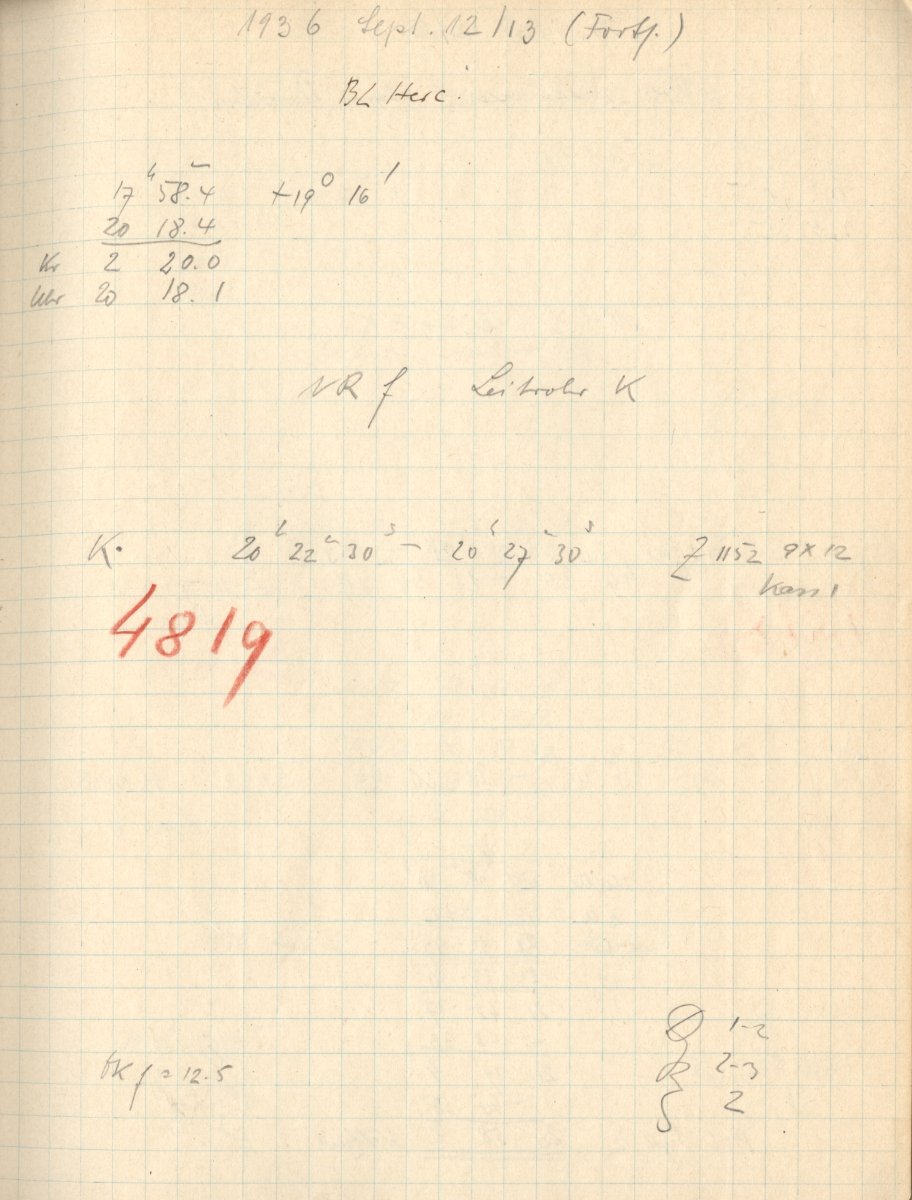 1936 Sept. 12/13 (Forts.)
BL Herc.
17ʰ 58.4ᵐ +19⁰ 16'
20 18.4
Kr 2 20.0
Uhr 20 18.1
NR f Leitrohr K
K. 20ʰ 22ᵐ 30ˢ – 20ʰ 27ᵐ 30ˢ Z 1152 9x12
Kass 1
4819
D 1-2
R 2-3
tK f = 12.5
S 2